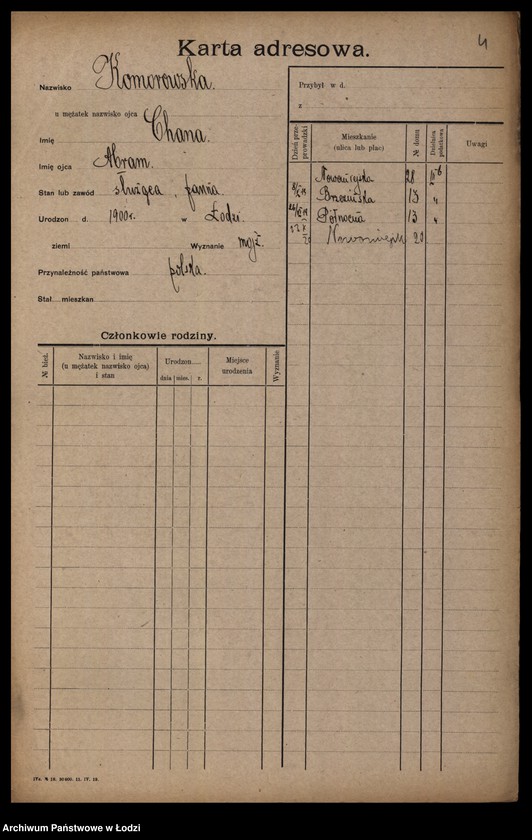 4
Karta adresowa.
Nazwisko Komorowska.
u mężatek nazwisko ojca
Imię Chana.
Imię ojca Abram.
Stan lub zawód służąca, panna.
Urodzon d. 1900 r. w Łodzi.
ziemi Wyznanie mojż.
Przynależność państwowa polska.
Stał. mieszkan.
Przybył w d.
z "
Dzień przeprowadzki
Mieszkanie (ulica lub plac)
№ domu
Dzielnica policyjna
Uwagi
28
Brzezińska 13 "
Północna 13 "
20
Członkowie rodziny.
№ bież.
Nazwisko i imię
(u mężatek nazwisko ojca)
i stan
Urodzon
dnia mies. r.
Miejsce
urodzenia
Wyznanie
Archiwum Państwowe w Łodzi